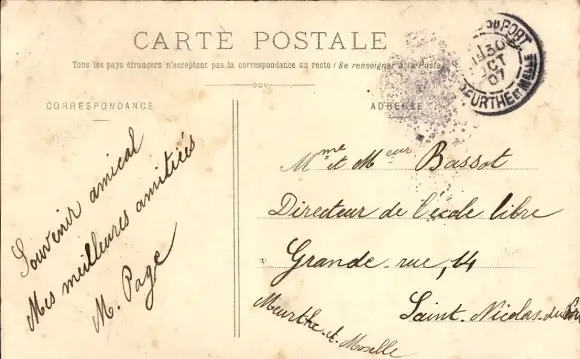 CARTE POSTALE
Tous les pays étrangers n'acceptent pas la correspondance au recto (Se renseigner à la Poste)
CORRESPONDANCE
ADRESSE
DU PORT
30
OCT
07
MEURTHE ET MELLE
Souvenir amical
Mes meilleures amitiés
M. Page
Mme et Meur Bassot
Directeur de l'école libre
Grande-rue, 14
Saint-Nicolas-du-Port
Meurthe-et-Moselle